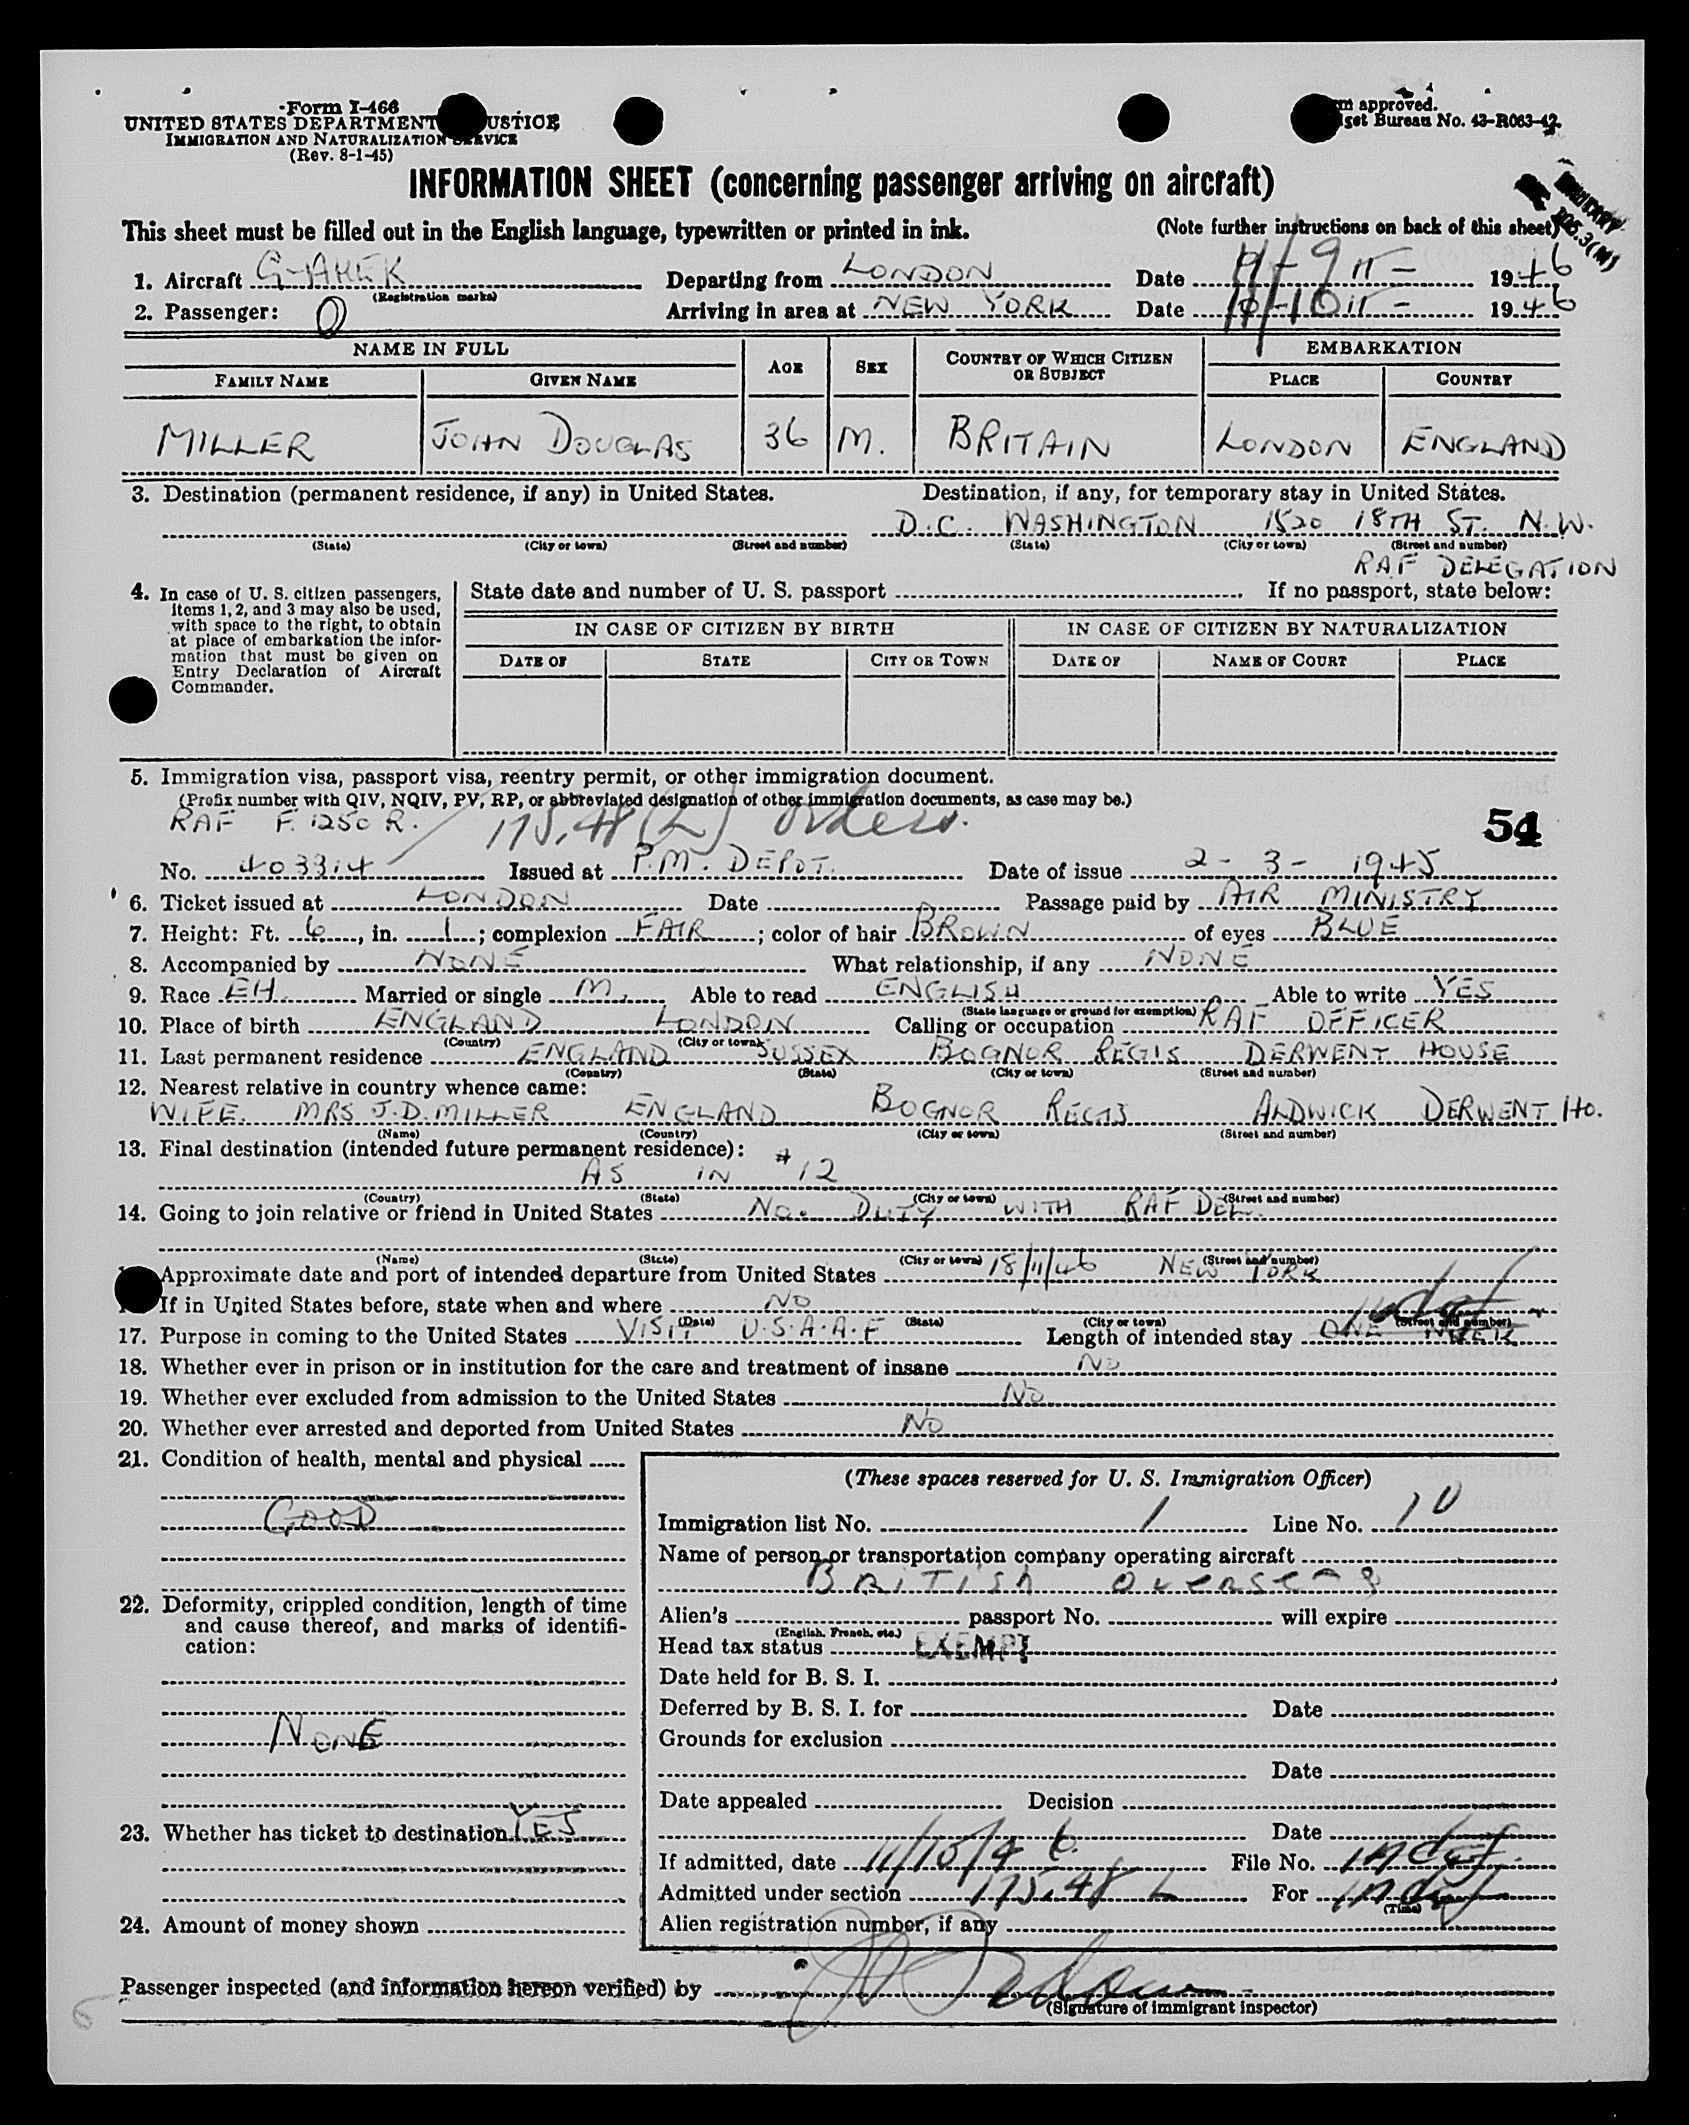 Form I-466
UNITED STATES DEPARTMENT USTICE
IMMIGRATION AND NATURALIZATION SERVICE
(Rev. 8-1-45)
m approved.
get Bureau No. 43-R063-42.
INFORMATION SHEET (concerning passenger arriving on aircraft)
This sheet must be filled out in the English language, typewritten or printed in ink. (Note further instructions on back of this sheet)
1. Aircraft G-AHEK (Registration marks) Departing from LONDON Date 1946
2. Passenger: Arriving in area at NEW YORK Date 1946
NAME IN FULL AGE SEX COUNTRY OF WHICH CITIZEN OR SUBJECT EMBARKATION
FAMILY NAME GIVEN NAME PLACE COUNTRY
MILLER JOHN DOUGLAS 36 M. BRITAIN LONDON ENGLAND
3. Destination (permanent residence, if any) in United States. Destination, if any, for temporary stay in United States.
D.C. WASHINGTON 1520 18TH ST. N.W.
(State) (City or town) (Street and number) (State) (City or town) (Street and number)
RAF DELEGATION
4. In case of U. S. citizen passengers, items 1, 2, and 3 may also be used, with space to the right, to obtain at place of embarkation the information that must be given on Entry Declaration of Aircraft Commander.
State date and number of U. S. passport If no passport, state below:
IN CASE OF CITIZEN BY BIRTH IN CASE OF CITIZEN BY NATURALIZATION
DATE OF STATE CITY OR TOWN DATE OF NAME OF COURT PLACE
5. Immigration visa, passport visa, reentry permit, or other immigration document.
(Prefix number with QIV, NQIV, PV, RP, or abbreviated designation of other immigration documents, as case may be.)
RAF F. 1250 R. / 175.48 (L) orders. 54
No. 403314 Issued at P.M. DEPOT. Date of issue 2-3-1945
6. Ticket issued at LONDON Date Passage paid by AIR MINISTRY
7. Height: Ft. 6, in. 1; complexion FAIR; color of hair BROWN of eyes BLUE
8. Accompanied by NONE What relationship, if any NONE
9. Race EH. Married or single M. Able to read ENGLISH Able to write YES
(State language or ground for exemption)
10. Place of birth ENGLAND LONDON Calling or occupation RAF OFFICER
(Country) (City or town)
11. Last permanent residence ENGLAND SUSSEX BOGNOR REGIS DERWENT HOUSE
(Country) (State) (City or town) (Street and number)
12. Nearest relative in country whence came:
WIFE. MRS J.D. MILLER ENGLAND BOGNOR REGIS ALDWICK DERWENT HO.
(Name) (Country) (City or town) (Street and number)
13. Final destination (intended future permanent residence):
AS IN #12
(Country) (State) (City or town) (Street and number)
14. Going to join relative or friend in United States NO. DUTY WITH RAF DEL.
(Name) (State) (City or town) (Street and number)
Approximate date and port of intended departure from United States 18/11/46 NEW YORK
If in United States before, state when and where NO
(Date) (State) (City or town) (Street and number)
17. Purpose in coming to the United States VISIT U.S.A.A.F Length of intended stay ONE WEEK
18. Whether ever in prison or in institution for the care and treatment of insane NO
19. Whether ever excluded from admission to the United States NO
20. Whether ever arrested and deported from United States NO
21. Condition of health, mental and physical
GOOD
22. Deformity, crippled condition, length of time and cause thereof, and marks of identification:
NONE
23. Whether has ticket to destination YES
24. Amount of money shown
(These spaces reserved for U. S. Immigration Officer)
Immigration list No. 1 Line No. 10
Name of person or transportation company operating aircraft
BRITISH overseas
Alien's passport No. will expire
(English, French, etc.)
Head tax status EXEMPT
Date held for B. S. I.
Deferred by B. S. I. for Date
Grounds for exclusion
Date
Date appealed Decision
Date
If admitted, date 11/10/46. File No. indef.
Admitted under section 175.48 L For indef
(Time)
Alien registration number, if any
Passenger inspected (and information hereon verified) by
(Signature of immigrant inspector)